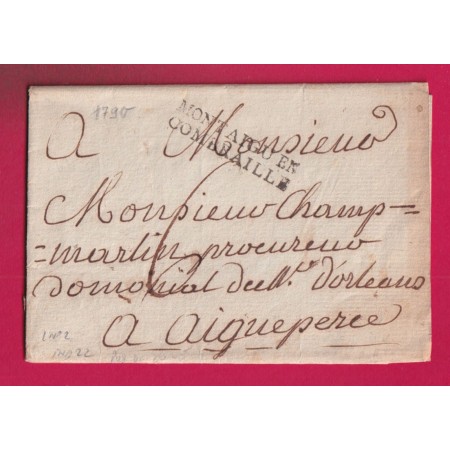 1790
MONTAIGU EN
COMBRAILLE
a Monsieur
Monsieur Champ=
=martin procureur
domanial de Mr. d'orleans
a aigueperce